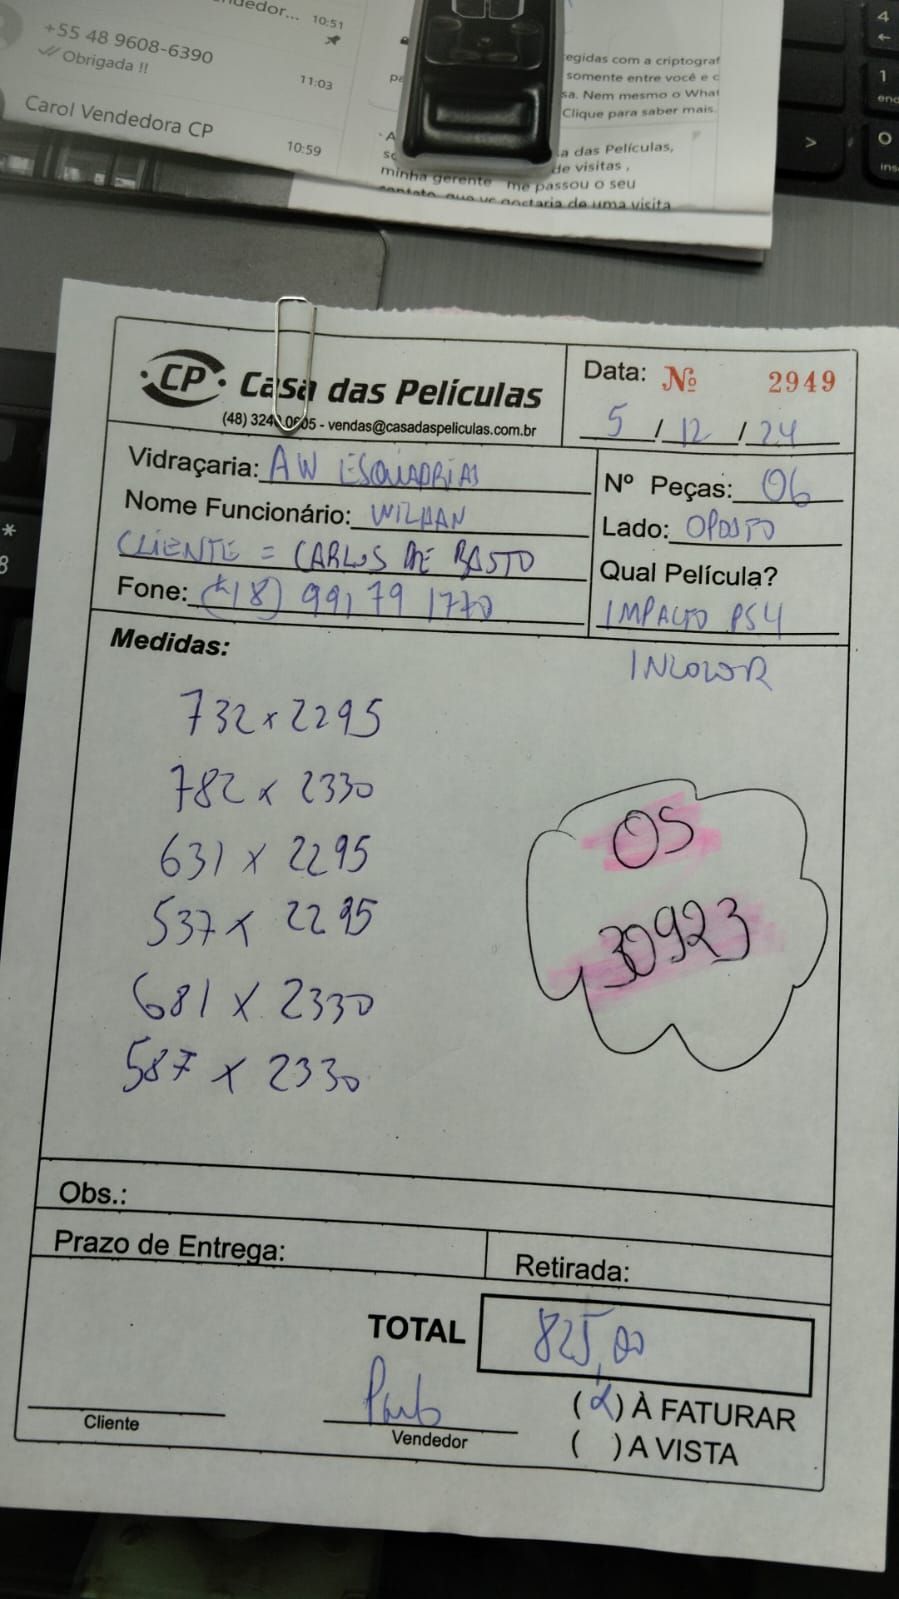 ndedor... 10:51
+55 48 9608-6390
Obrigada !! 11:03
Carol Vendedora CP
10:59
egidas com a criptograf
somente entre você e c
sa. Nem mesmo o What
Clique para saber mais.
a das Películas,
de visitas ,
minha gerente me passou o seu
contato, que vc gostaria de uma visita
4
1
end
0
ins
>
*
8
CP Casa das Películas
(48) 324 0605 - vendas@casadaspeliculas.com.br
Data: Nº 2949
5 / 12 / 24
Vidraçaria: AW ESQUADRIAS
Nº Peças: 06
Nome Funcionário: WILHAN
Lado: OPOSTO
CLIENTE = CARLOS DE BASTO
Qual Película?
Fone: (48) 99179 1770
IMPACTO PS4
INCOLOR
Medidas:
732 x 2295
782 x 2330
631 x 2295
537 x 2295
681 x 2330
587 x 2330
OS
30923
Obs.:
Prazo de Entrega:
Retirada:
TOTAL 825,00
Cliente
Vendedor
(X) À FATURAR
( ) A VISTA